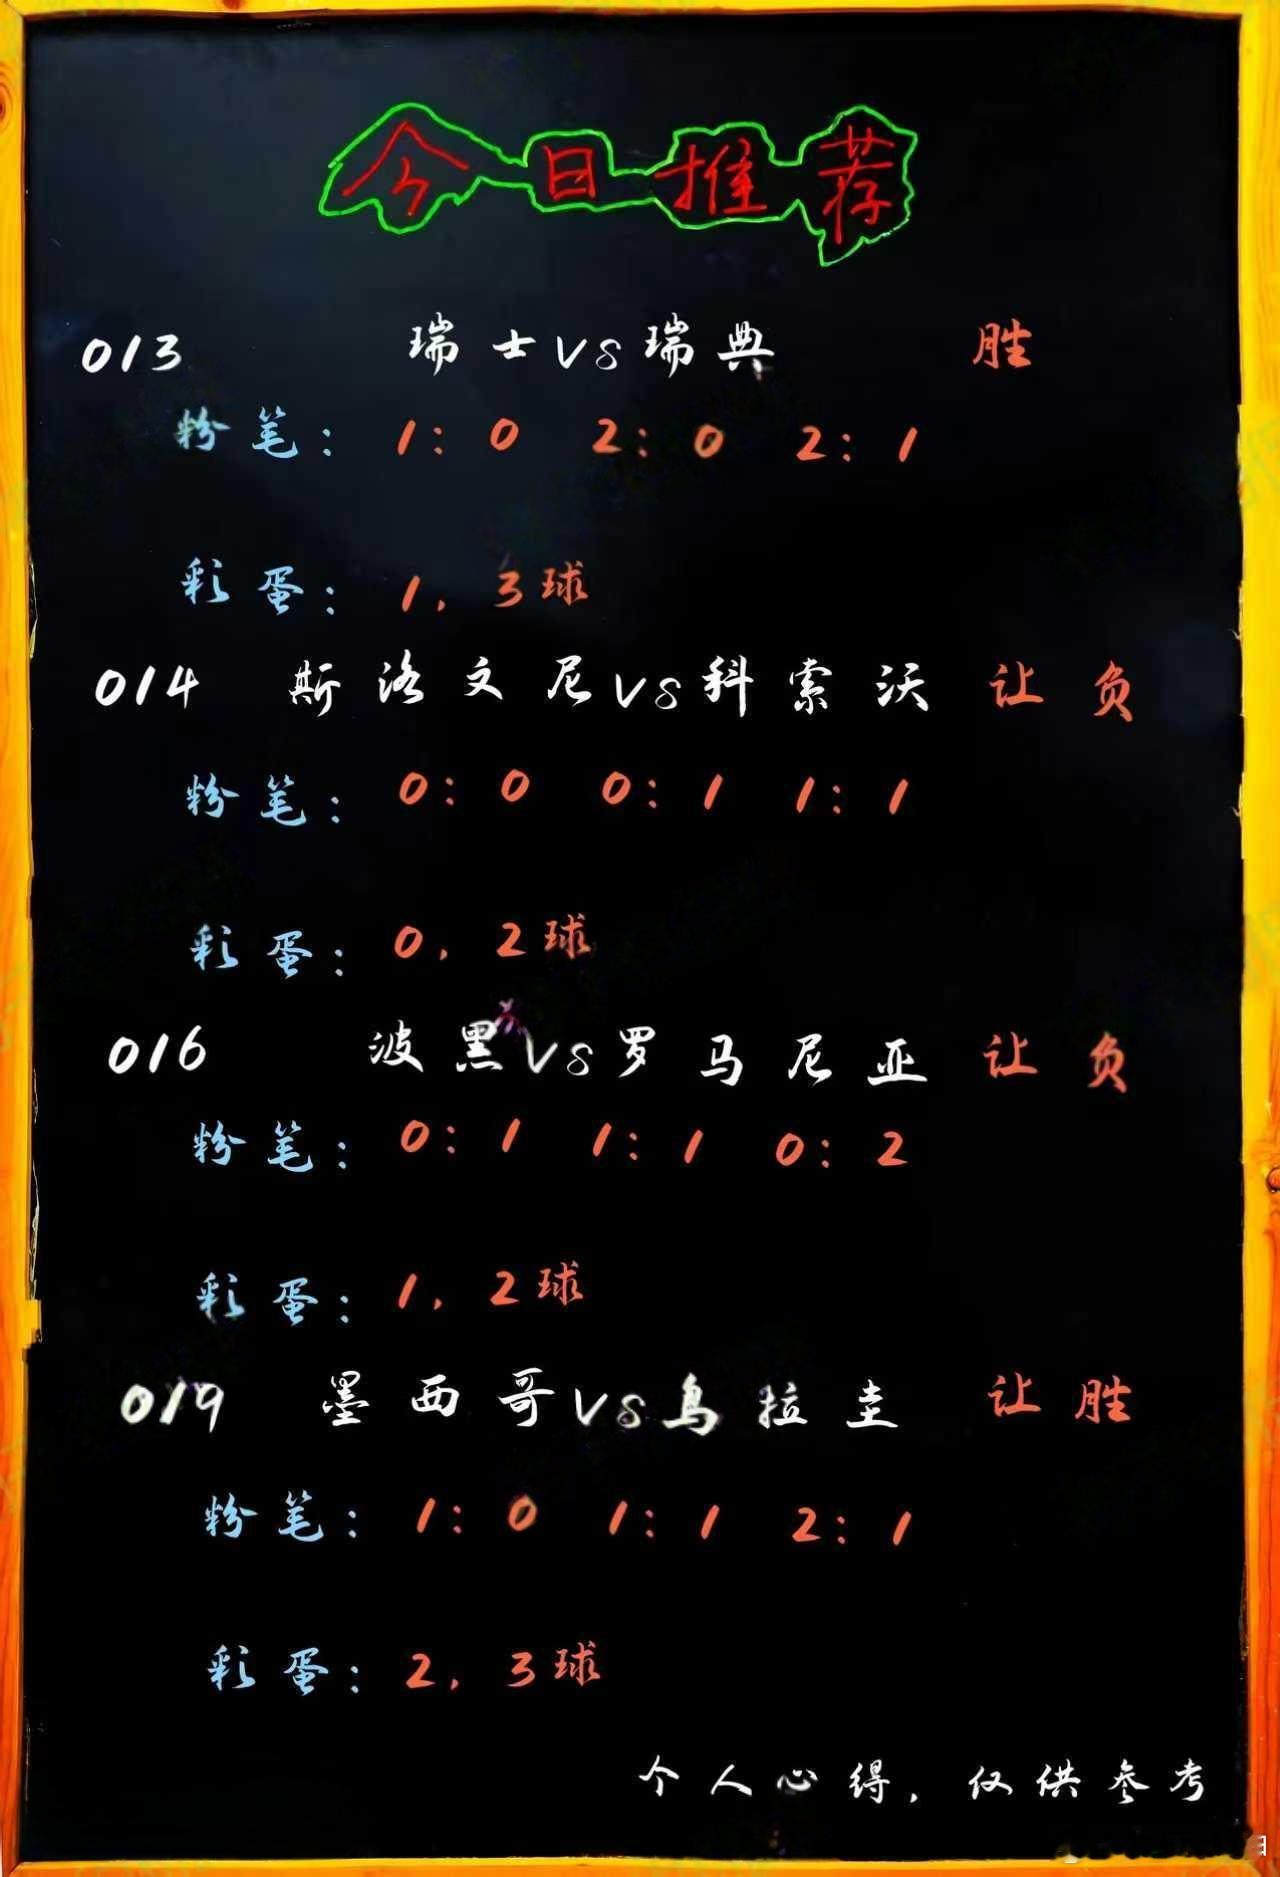 今日推荐
013 瑞士VS瑞典 胜
粉笔: 1:0 2:0 2:1
彩蛋: 1,3球
014 斯洛文尼VS科索沃 让负
粉笔: 0:0 0:1 1:1
彩蛋: 0,2球
016 波黑VS罗马尼亚 让负
粉笔: 0:1 1:1 0:2
彩蛋: 1,2球
019 墨西哥VS乌拉圭 让胜
粉笔: 1:0 1:1 2:1
彩蛋: 2,3球
个人心得,仅供参考